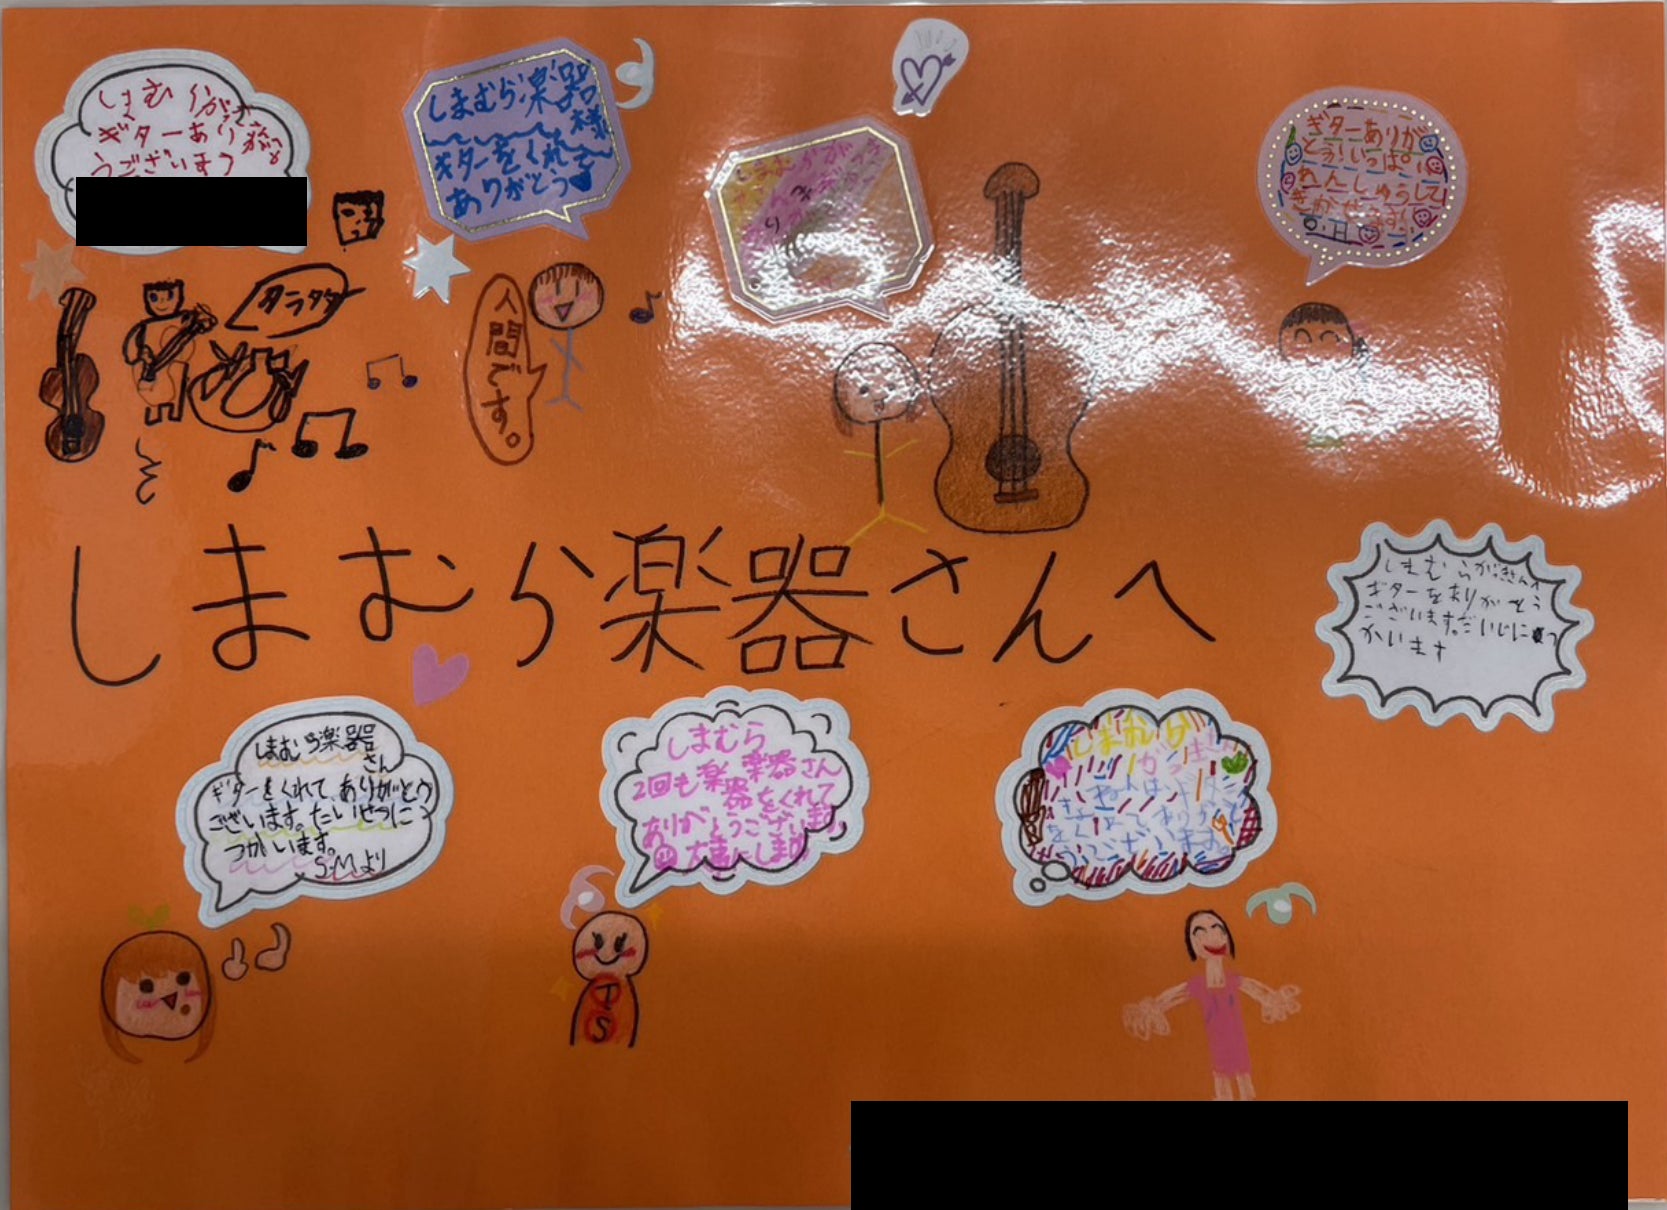 しまむらがっき
ギターあり
うございます
しまむら楽器
様
ギターをくれて
ありがとう
ギターありが
とう!いっぱい
れんしゅうして
きかせます!
タラタタ
人間です。
しまむら楽器さんへ
しまむらがっきさんへ
ギターをありがとう
ございます。だいじに
かいます
しまむら楽器
さん
ギターをくれて、ありがとう
ございます。たいせつに
つかいます。
S.Mより
しまむら
2回も楽 楽器さん
器をくれて
ありがとうございます
大事にします
T
S